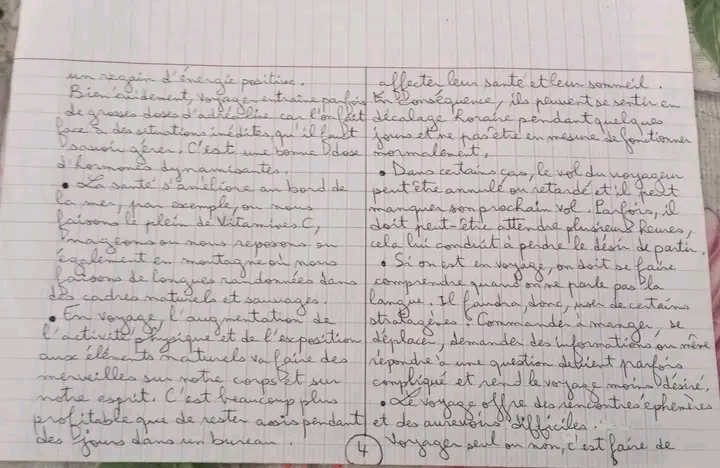 un regain d'énergie positive.
Bien évidemment, voyager entraîne parfois
de grosses doses d'adrénaline car l'on fait
face à des situations inédites, qu'il faut
savoir gérer. C'est une bonne dose
d'hormones dynamisantes.
• La santé s'améliore au bord de
la mer, par exemple, où nous
faisons le plein de Vitamines C,
nageons ou nous reposons ou
également en montagne où nous
faisons de longues randonnées dans
des cadres naturels et sauvages.
• En voyage, l'augmentation de
l'activité physique et de l'exposition
aux éléments naturels va faire des
merveilles sur notre corps et sur
notre esprit. C'est beaucoup plus
profitable que de rester assis pendant
des jours dans un bureau.
affecter leur santé et leur sommeil.
En conséquence, ils peuvent se sentir en
décalage horaire pendant quelques
jours et ne pas être en mesure de fonctionner
normalement.
• Dans certains cas, le vol du voyageur
peut être annulé ou retardé et il peut
manquer son prochain vol. Parfois, il
doit peut-être attendre plusieurs heures,
cela lui conduit à perdre le désir de partir.
• Si on est en voyage, on doit se faire
comprendre quand on ne parle pas la
langue. Il faudra, donc, user de certains
stratagènes. Commander à manger, se
déplacer, demander des informations ou même
répondre à une question devient parfois
compliqué et rend le voyage moins désiré.
• Le voyage offre des rencontres éphémères
et des aurevoirs difficiles.
Voyager seul ou non, c'est faire de
4